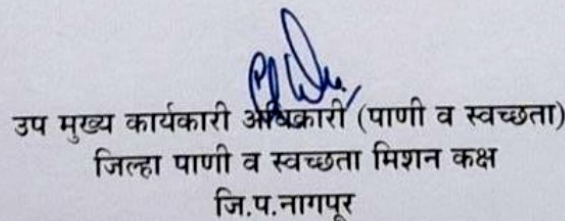 उप मुख्य कार्यकारी अधिकारी (पाणी व स्वच्छता)
जिल्हा पाणी व स्वच्छता मिशन कक्ष
जि.प.नागपूर